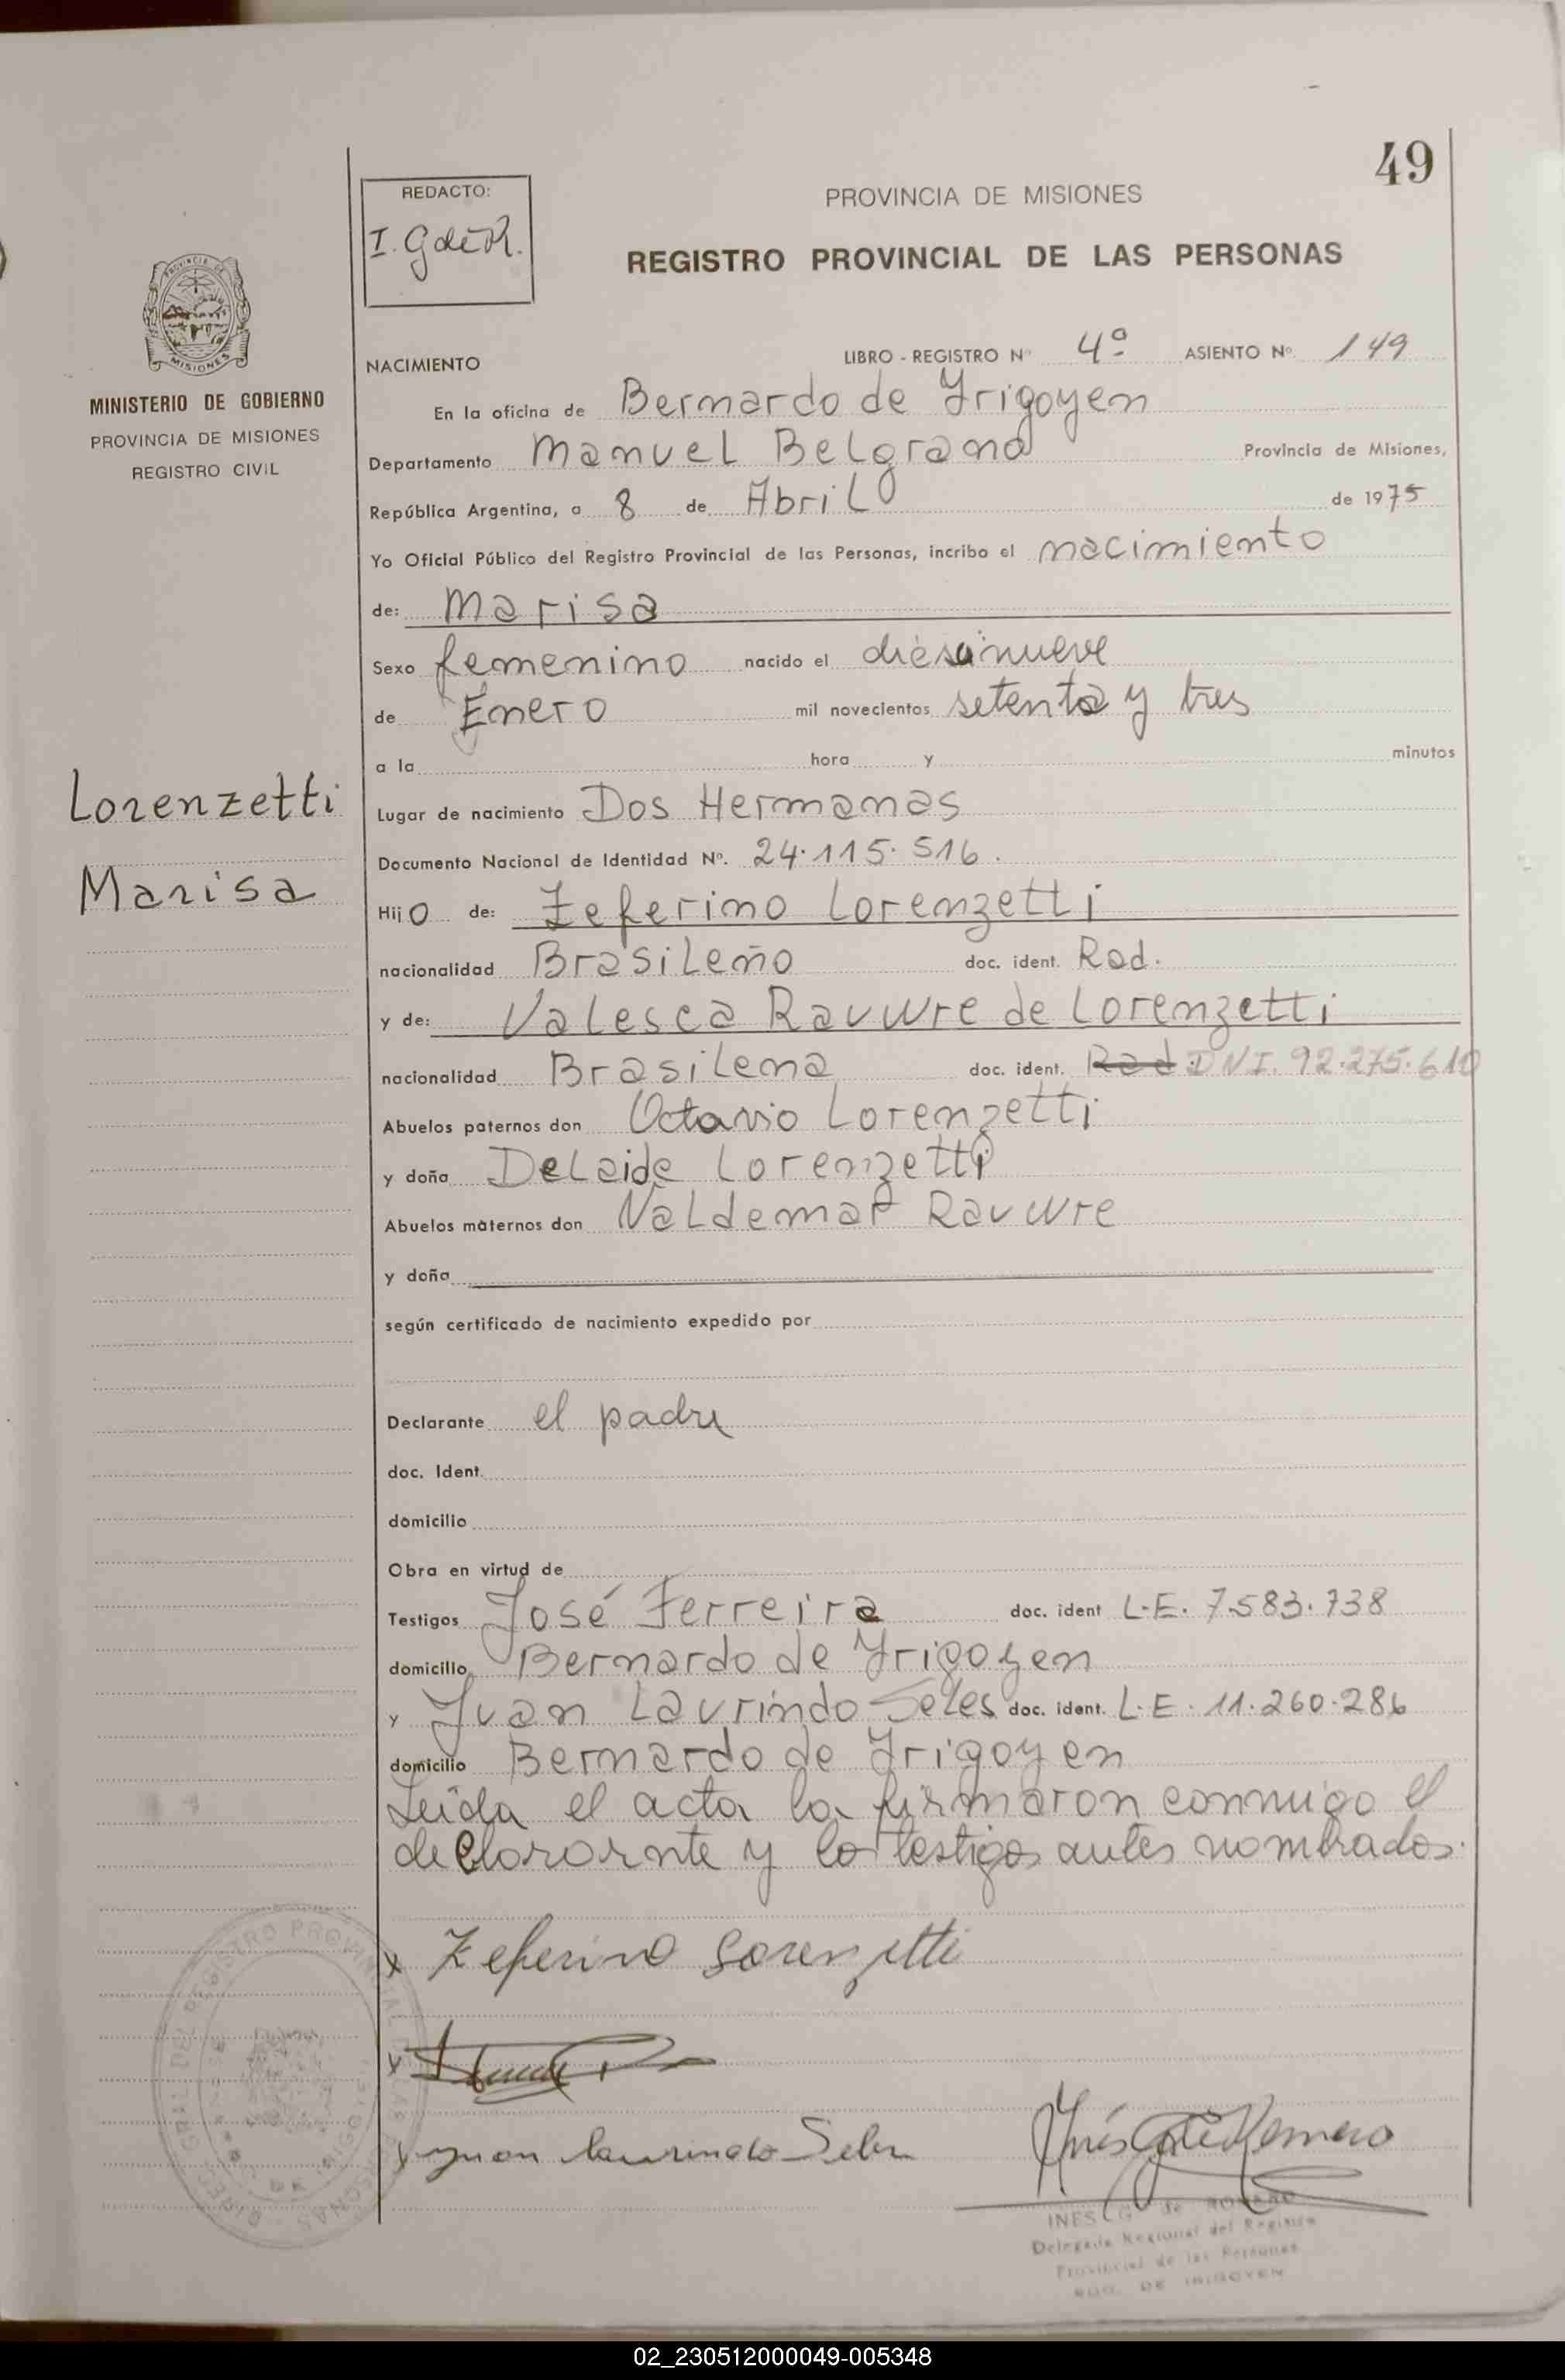 49
REDACTO:
I. G de R.
PROVINCIA DE MISIONES
REGISTRO PROVINCIAL DE LAS PERSONAS
PROVINCIA DE
MISIONES
MINISTERIO DE GOBIERNO
PROVINCIA DE MISIONES
REGISTRO CIVIL
Lorenzetti
Marisa
NACIMIENTO LIBRO - REGISTRO Nº 4º ASIENTO Nº 149
En la oficina de Bernardo de Yrigoyen
Departamento Manuel Belgrano Provincia de Misiones,
República Argentina, a 8 de Abril de 1975
Yo Oficial Público del Registro Provincial de las Personas, incribo el nacimiento
de: Marisa
Sexo femenino nacido el diesinueve
de Enero mil novecientos setenta y tres
a la hora y minutos
Lugar de nacimiento Dos Hermanas
Documento Nacional de Identidad Nº. 24.115.516.
Hijo de: Zeferino Lorenzetti
nacionalidad Brasileño doc. ident. Rad.
y de: Valesca Rauwre de Lorenzetti
nacionalidad Brasilena doc. ident. Rad. DNI. 92.275.610
Abuelos paternos don Octavio Lorenzetti
y doña Delaide Lorenzetti
Abuelos maternos don Valdemar Rauwre
y doña
según certificado de nacimiento expedido por
Declarante el padre
doc. Ident.
domicilio
Obra en virtud de
Testigos José Ferreira doc. ident L.E. 7.583.738
domicilio Bernardo de Yrigoyen
y Juan Laurindo Seles doc. ident. L.E. 11.260.286
domicilio Bernardo de Yrigoyen
Leida el acta la firmaron conmigo el
declarante y lo testigos antes nombrados.
x Zeferino Lorenzetti
x
x Juan laurindo Seles
Inés G de Romero
INES G. de ROMERO
Delegada Regional del Registro
Provincial de las Personas
BDO. DE IRIGOYEN
02_230512000049-005348